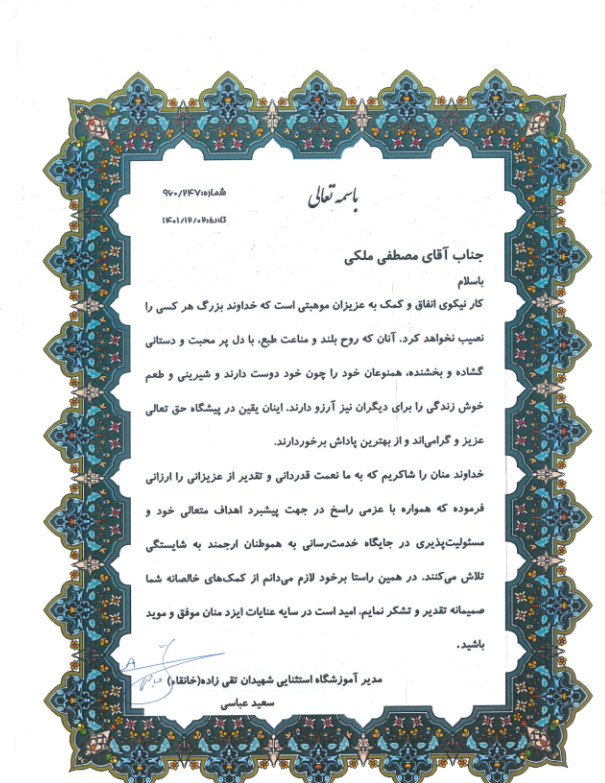 باسمه تعالی
شماره:۹۶۰/۲۴۷
تاریخ:۱۴۰۱/۱۲/۰۲
جناب آقای مصطفی ملکی
باسلام
کار نیکوی انفاق و کمک به عزیزان موهبتی است که خداوند بزرگ هر کسی را
نصیب نخواهد کرد. آنان که روح بلند و مناعت طبع، با دل پر محبت و دستانی
گشاده و بخشنده، همنوعان خود را چون خود دوست دارند و شیرینی و طعم
خوش زندگی را برای دیگران نیز آرزو دارند. اینان یقین در پیشگاه حق تعالی
عزیز و گرامی‌اند و از بهترین پاداش برخوردارند.
خداوند منان را شاکریم که به ما نعمت قدردانی و تقدیر از عزیزانی را ارزانی
فرموده که همواره با عزمی راسخ در جهت پیشبرد اهداف متعالی خود و
مسئولیت‌پذیری در جایگاه خدمت‌رسانی به هموطنان ارجمند به شایستگی
تلاش می‌کنند. در همین راستا برخود لازم می‌دانم از کمک‌های خالصانه شما
صمیمانه تقدیر و تشکر نمایم. امید است در سایه عنایات ایزد منان موفق و موید
باشید.
مدیر آموزشگاه استثنایی شهیدان تقی زاده(خانقاه)
سعید عباسی